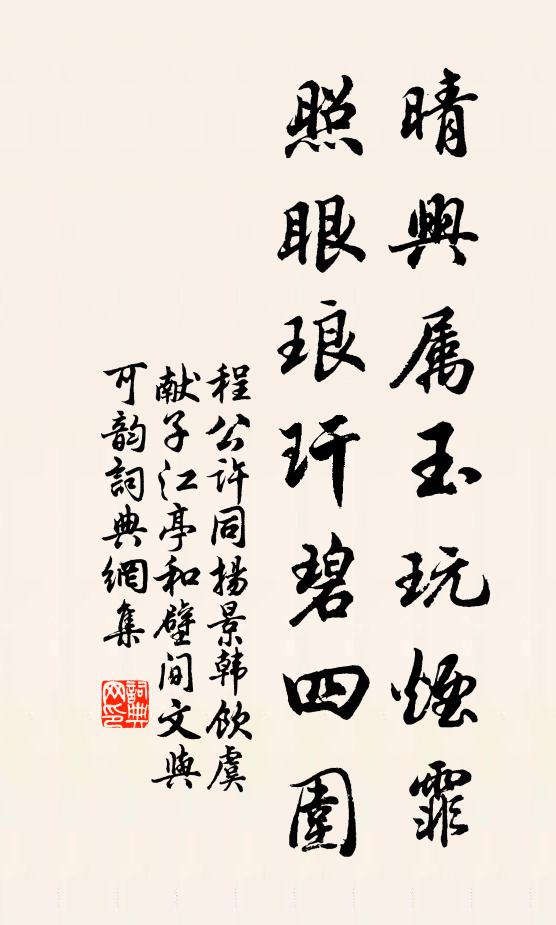 晴興属玉玩煙霏
照眼琅玕碧四圍
程公許同揚景韩飲虞
献子江亭和壁间文與
可韵詞典網集
詞典
网